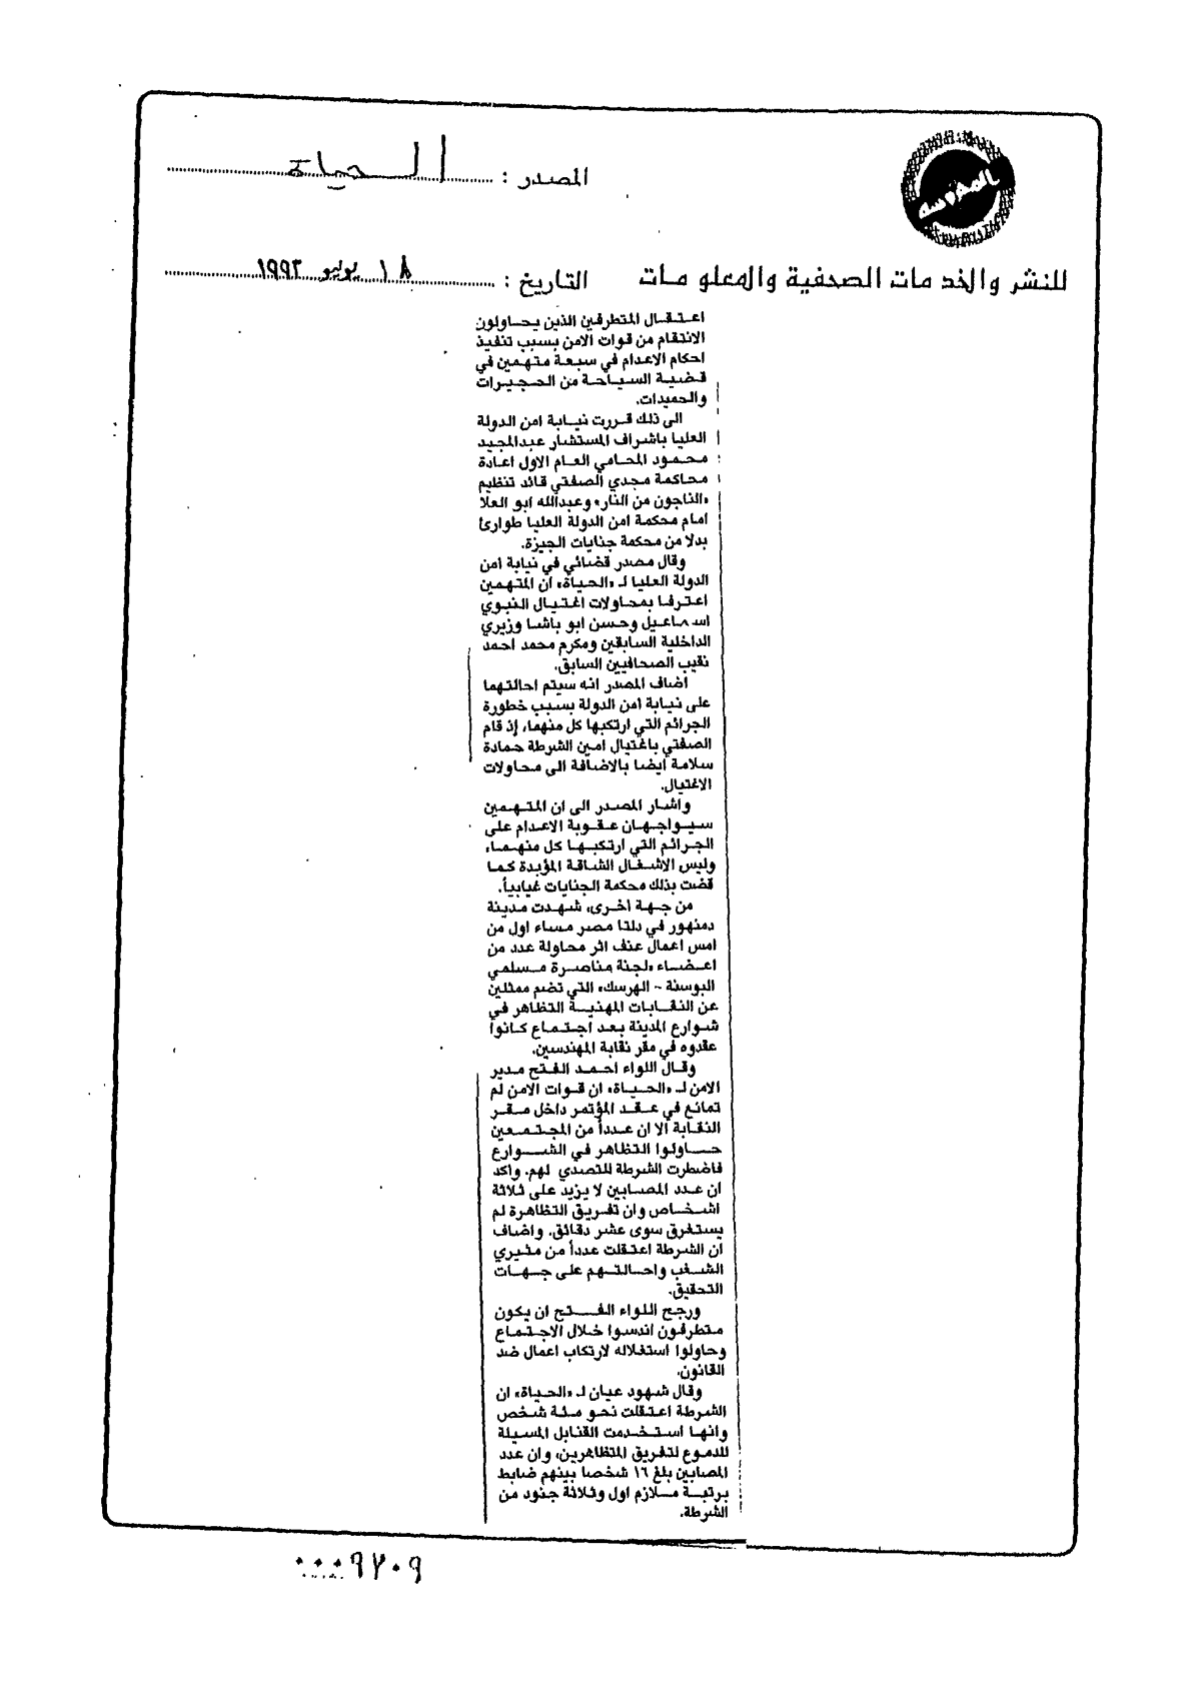 المحروسة
المصدر : الحياة
للنشر والخدمات الصحفية والمعلومات
التاريخ : ١٨ يوليو ١٩٩٣
اعتقال المتطرفين الذين يحاولون
الانتقام من قوات الامن بسبب تنفيذ
احكام الاعدام في سبعة متهمين في
قضية السياحة من الحجيرات
والحميدات.
الى ذلك قررت نيابة امن الدولة
العليا باشراف المستشار عبدالمجيد
محمود المحامي العام الاول اعادة
محاكمة مجدي الصفتي قائد تنظيم
«الناجون من النار» وعبدالله ابو العلا
امام محكمة امن الدولة العليا طوارئ
بدلا من محكمة جنايات الجيزة.
وقال مصدر قضائي في نيابة امن
الدولة العليا لـ «الحياة» ان المتهمين
اعترفا بمحاولات اغتيال النبوي
اسماعيل وحسن ابو باشا وزيري
الداخلية السابقين ومكرم محمد احمد
نقيب الصحافيين السابق.
اضاف المصدر انه سيتم احالتهما
على نيابة امن الدولة بسبب خطورة
الجرائم التي ارتكبها كل منهما، إذ قام
الصفتي باغتيال امين الشرطة حمادة
سلامة ايضا بالاضافة الى محاولات
الاغتيال.
واشار المصدر الى ان المتهمين
سيواجهان عقوبة الاعدام على
الجرائم التي ارتكبها كل منهما،
وليس الاشغال الشاقة المؤبدة كما
قضت بذلك محكمة الجنايات غيابياً.
من جهة اخرى، شهدت مدينة
دمنهور في دلتا مصر مساء اول من
امس اعمال عنف اثر محاولة عدد من
اعضاء «لجنة مناصرة مسلمي
البوسنة - الهرسك» التي تضم ممثلين
عن النقابات المهنية التظاهر في
شوارع المدينة بعد اجتماع كانوا
عقدوه في مقر نقابة المهندسين.
وقال اللواء احمد الفتح مدير
الامن لـ «الحياة» ان قوات الامن لم
تمانع في عقد المؤتمر داخل مقر
النقابة الا ان عدداً من المجتمعين
حاولوا التظاهر في الشوارع
فاضطرت الشرطة للتصدي لهم. واكد
ان عدد المصابين لا يزيد على ثلاثة
اشخاص وان تفريق التظاهرة لم
يستغرق سوى عشر دقائق. واضاف
ان الشرطة اعتقلت عدداً من مثيري
الشغب واحالتهم على جهات
التحقيق.
ورجح اللواء الفتح ان يكون
متطرفون اندسوا خلال الاجتماع
وحاولوا استغلاله لارتكاب اعمال ضد
القانون.
وقال شهود عيان لـ «الحياة» ان
الشرطة اعتقلت نحو مئة شخص
وانها استخدمت القنابل المسيلة
للدموع لتفريق المتظاهرين، وان عدد
المصابين بلغ ١٦ شخصا بينهم ضابط
برتبة ملازم اول وثلاثة جنود من
الشرطة.